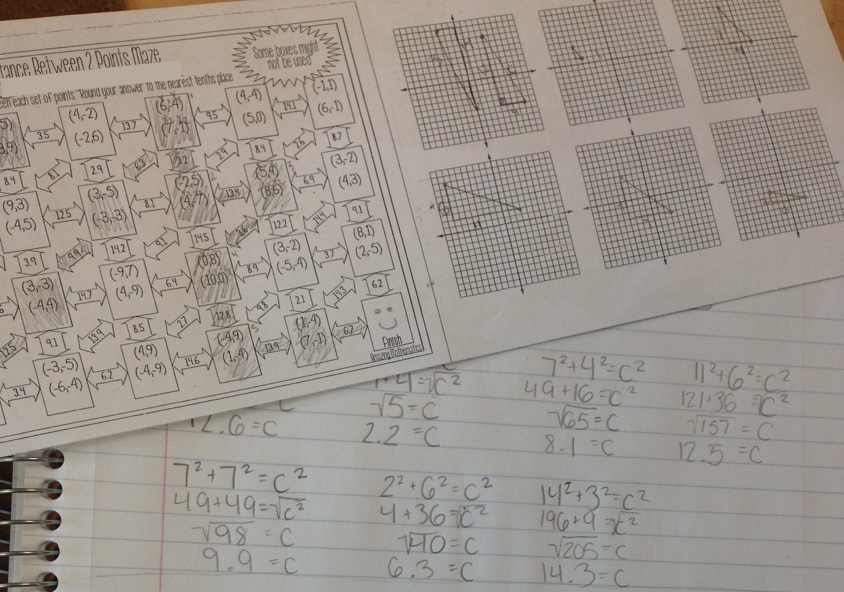 tance Between 2 Points Maze
Some boxes might
not be used
een each set of points. *Round your answer to the nearest tenths place
(4,-2)
(-2,6)
3.5
13.7
(6,-4)
(7,-1)
9.5
(4,-4)
(5,0)
14.1
(-1,1)
(6,-1)
8.4
8.1
2.9
3.2
2.9
8.4
7.6
8.7
(9,3)
(-4,5)
12.5
(3,-5)
(-3,-3)
8.1
(-2,5)
(4,-7)
13.4
(5,4)
(8,6)
6.9
(3,-2)
(4,3)
3.9
9.9
14.2
9.1
14.5
3.6
12.2
14.4
9.1
(3,-3)
(-4,4)
14.7
(-9,7)
(4,-9)
6.4
(0,8)
(10,0)
8.9
(3,-2)
(-5,-4)
3.7
(8,1)
(2,-5)
12.5
9.1
13.9
8.5
2.7
12.8
9.8
2.1
14.3
6.2
3.4
(-3,-5)
(-6,-4)
6.2
(4,9)
(-4,-9)
14.6
(-4,9)
(1,-4)
13.9
(1,-4)
(7,-1)
6.7
Finish
Amazing Mathematics
1+4=√c²
√5=C
2.2=C
12.6=C
7²+4²=C²
49+16=C²
√65=C
8.1=C
11²+6²=C²
121+36=√C²
√157=C
12.5=C
7²+7²=C²
49+49=√C²
√98=C
9.9=C
2²+6²=C²
4+36=√C²
√40=C
6.3=C
14²+3²=C²
196+9=√C²
√205=C
14.3=C